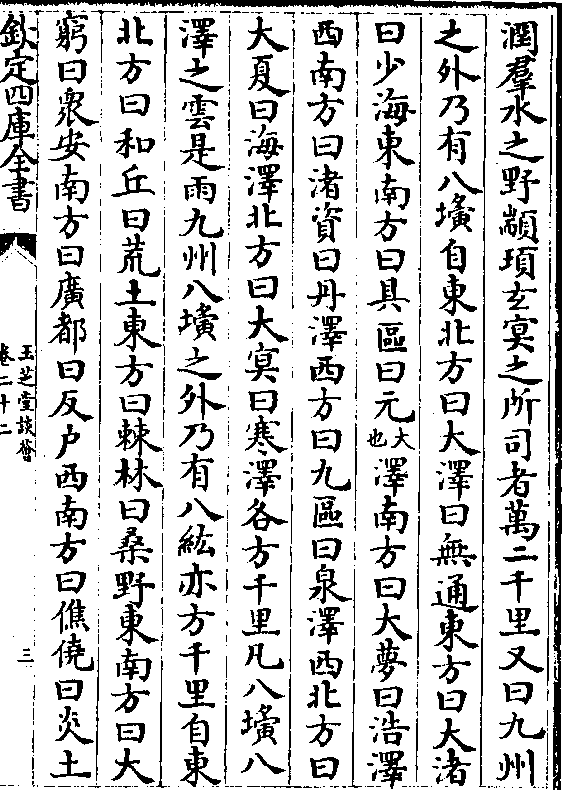 潤羣水之野顓頊玄冥之所司者萬二千里又曰九州
之外乃有八㙲自東北方曰大澤曰無通東方曰大渚
曰少海東南方曰具區曰元大也澤南方曰大夢曰浩澤
西南方曰渚資曰丹澤西方曰九區曰泉澤西北方曰
大夏曰海澤北方曰大冥曰寒澤各方千里凡八㙲八
澤之雲是雨九州八㙲之外乃有八紘亦方千里自東
北方曰和丘曰荒土東方曰棘林曰桑野東南方曰大
窮曰衆安南方曰廣都曰反户西南方曰僬僥曰炎土
欽定四庫全書
玉芝堂談薈
卷二十二
三